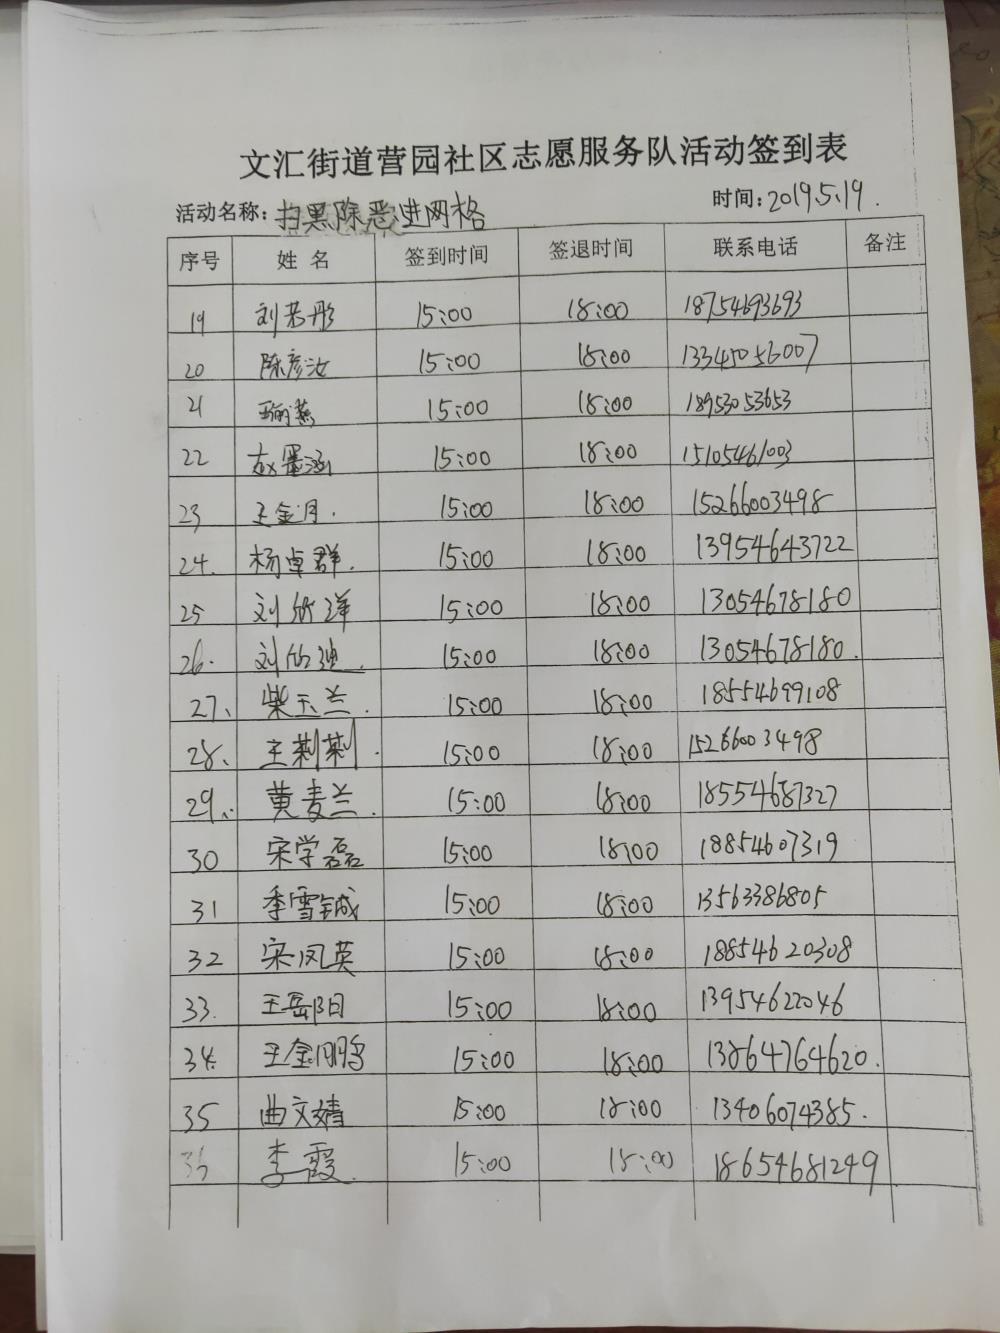 文汇街道营园社区志愿服务队活动签到表
活动名称：扫黑除恶进网格 时间：2019.5.19.
序号 姓名 签到时间 签退时间 联系电话 备注
19 刘若彤 15:00 18:00 18754693693
20 陈彦汝 15:00 18:00 13345056007
21 15:00 18:00 18953053653
22 赵墨涵 15:00 18:00 15105461003
23 王金月. 15:00 18:00 15266003498
24. 杨卓群. 15:00 18:00 13954643722
25 刘欣洋 15:00 18:00 13054678180
26. 刘欣迪. 15:00 18:00 13054678180.
27、 柴玉兰. 15:00 18:00 18554699108
28、 王莉莉. 15:00 18:00 15266003498
29、 黄麦兰. 15:00 18:00 18554687327
30 宋学磊 15:00 18:00 18854607319
31 季雪铖 15:00 18:00 13563386805
32 宋凤英 15:00 18:00 18854620308
33. 王岳阳 15:00 18:00 13954622046
34. 王金鹏 15:00 18:00 13864764620.
35 曲文婧 15:00 18:00 13406074385.
36 李霞. 15:00 18:00 18654681249